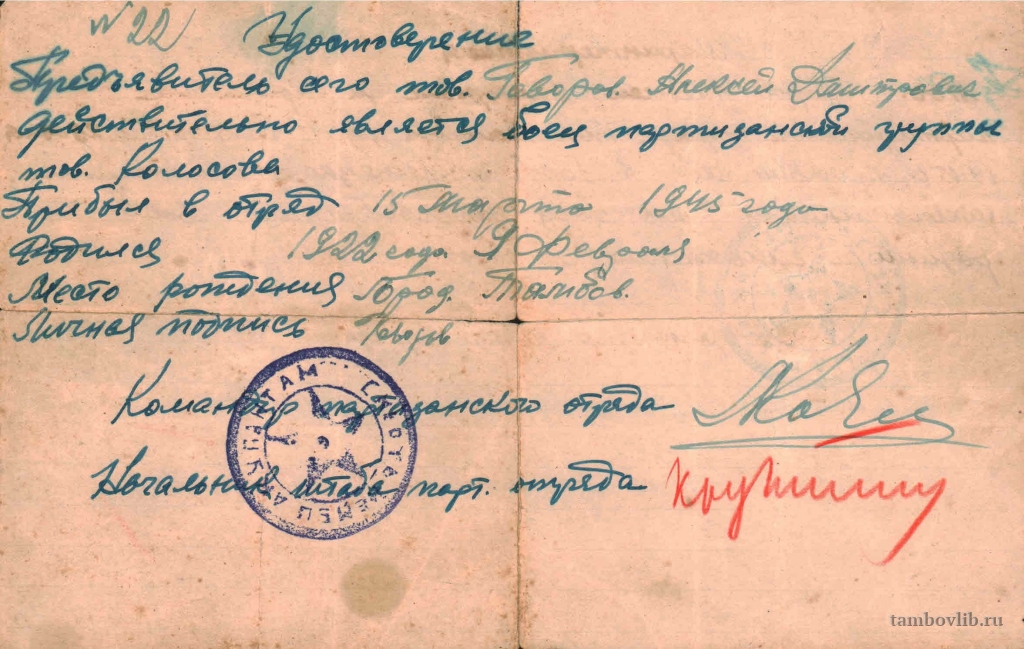 № 22
Удостоверение
Предъявитель сего тов. Говоров Алексей Дмитрович
действительно является боец партизанской группы
тов. Колосова
Прибыл в отряд 15 Марта 1945 года
Родился 1922 года 9 Февраля
Место рождения Город. Тамбов.
Личная подпись
Командир партизанского отряда
Начальник штаба парт. отряда
СМЕРТЬ НЕМЕЦ
tambovlib.ru